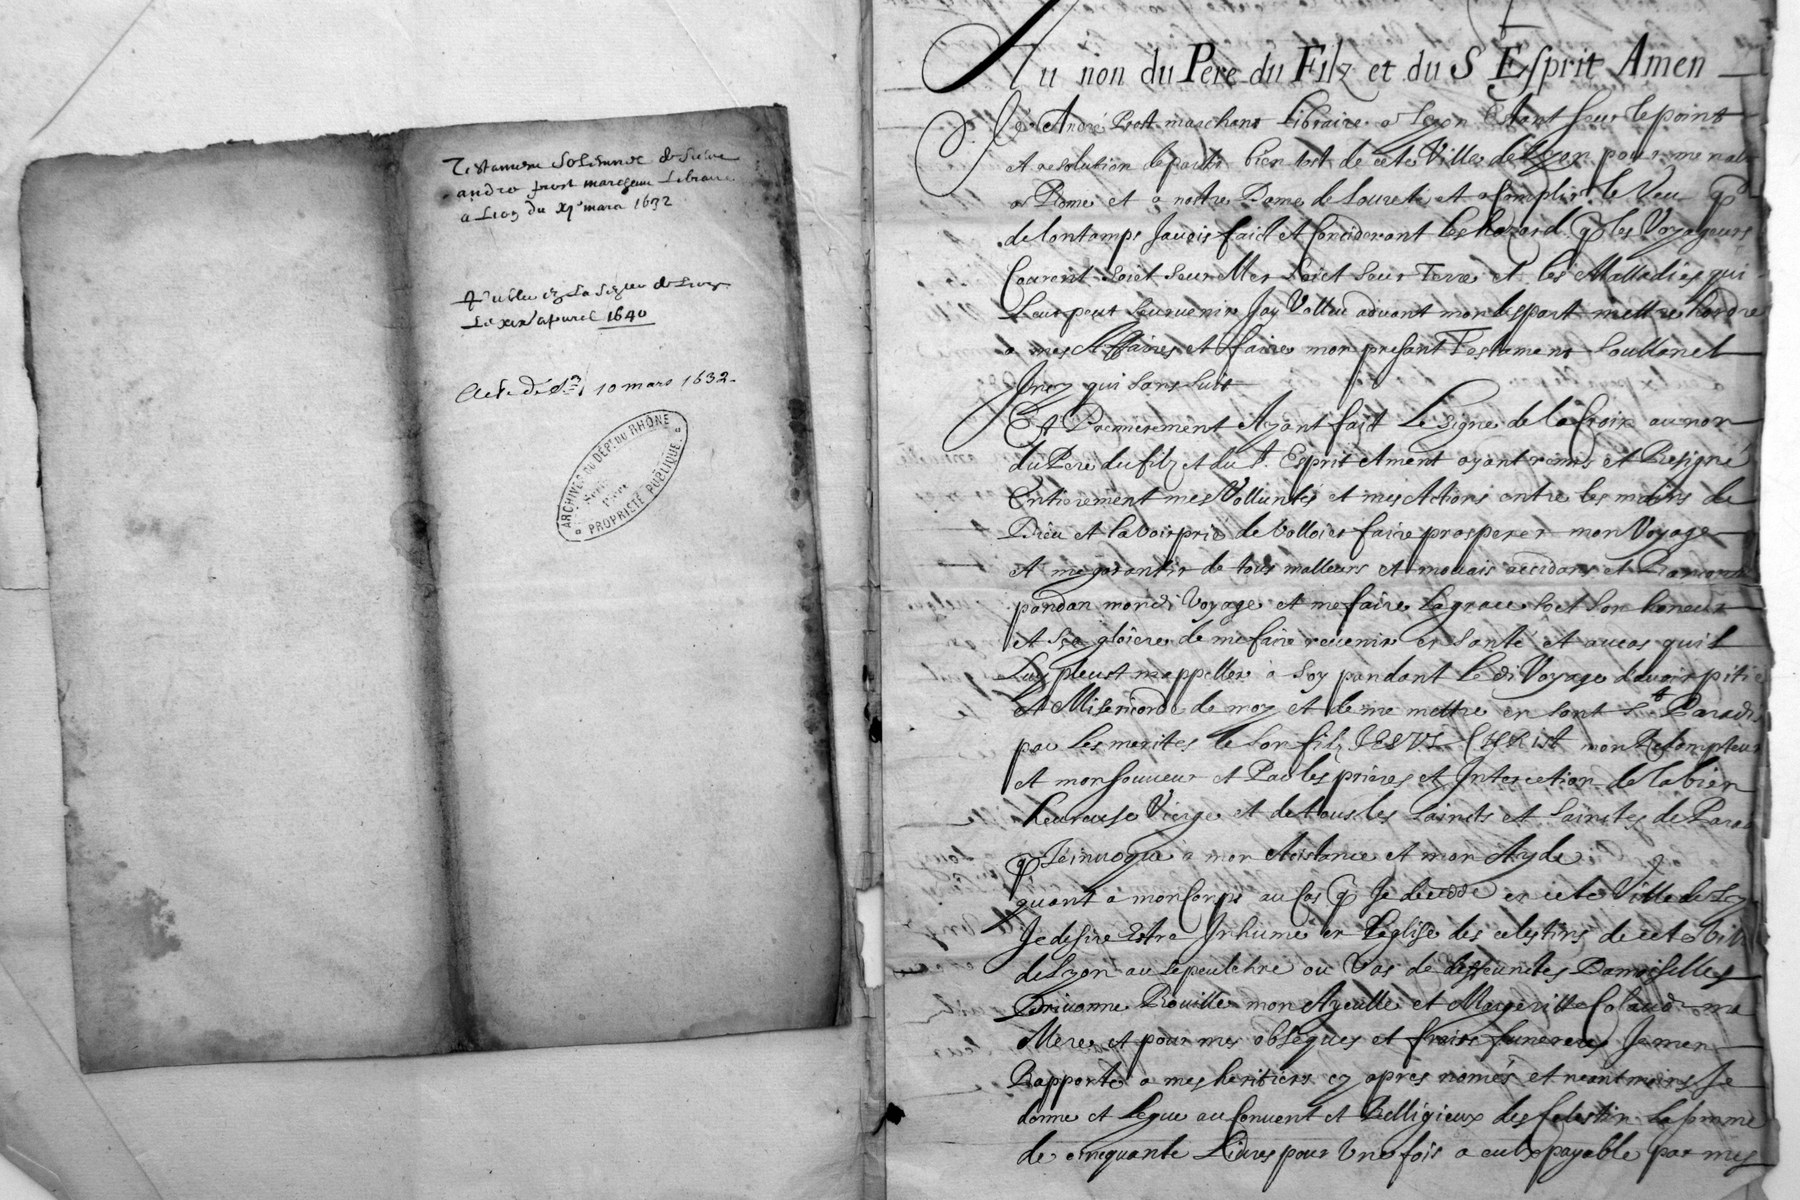 Testament Solemnel de Sieur
andre prost marchant Libraire
a Lion du xj mars 1632
Publie en La Senes de Lion
Le xix apvril 1640
Acte de 10 mars 1632
ARCHIVES DU DÉPT DU RHÔNE
PROPRIÉTÉ PUBLIQUE
Au non du Pere du Filz et du S Esprit Amen
Je André Prost marchant Libraire a Lyon Estant sur le point
et resolution de partir bien tost de cete Ville de Lyon pour me
a Rome et a nostre Dame de Lourete et acomplir le Veu q
de lontamps Javois faict et Considerant les hazard q les Voyageurs
Courent soict seur Mer soict seur Terre et les Malladies qui
Leur peut seurvenir Jay Vollu advant mon despart mettre hordre
a mes Affaires et faire mon presant Testament Soullanel
qui sans suit
Et Premierement Ayant faict Le signe de la Croix au non
du Pere du filz et du St. Esprit Ament ayant remis et Resigné
Entierement mes Volluntés et mes Actions entre les mains de
Dieu et lavoir prié de Volloier faire prosperer mon Voyage
et me garantir de tous malleurs et mouais accidans et
pandan mondi Voyage et me faire la grace soit son honeur
et sa gloiere de me faire revenir en santé et au cas quil
Luy pleust mappeller a soy pandant le di Voyage davoir pitie
et Misericorde de moy et de me mettre en sont St Paradis
par les merites de son filz JESVS CHRIST mon Redempteur
et mon sauveur et Par les prieres et Intercetion de la bien
heureuse Vierge et de tous les Saincts et Sainctes de
q Jeinvoque a mon Asistance et mon Ayde
quant a mon Corps au Cas q Je decedde en cete Ville de
Je desire Estre Inhume en Leglise des celestins de cete
de Lyon au sepeulchre ou Vas de deffeunctes Damoiselles
Drivonne Rouille mon Ayeulle et Margeritte Colaud ma
Mere et pour mes obseques et fraix funereux Je men
Rapporte a mes heritiers cy apres només et neantmoins Je
donne et Legue au Convent et Relligieux des Celestin La somme
de cinquante Livres pour Une fois a eulx payable par mes